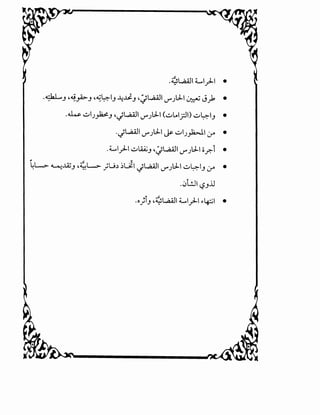 الحراسة القضائيّة.
طرق تعيين الحارس القضائيّ، وتحديد واجباته، وحقوقه، وسلطته.
واجبات (التزامات) الحارس القضائيّ، وإجراءات عمله.
من إجراءات عمل الحارس القضائيّ.
أجرة الحارس القضائيّ، ونفقات الحراسة.
من واجبات الحارس القضائيّ اتّخاذ دفاتر حسابيّة، وتقديمه حساباً
لذوي الشأن.
انتهاء الحراسة القضائيّة، وأثره.